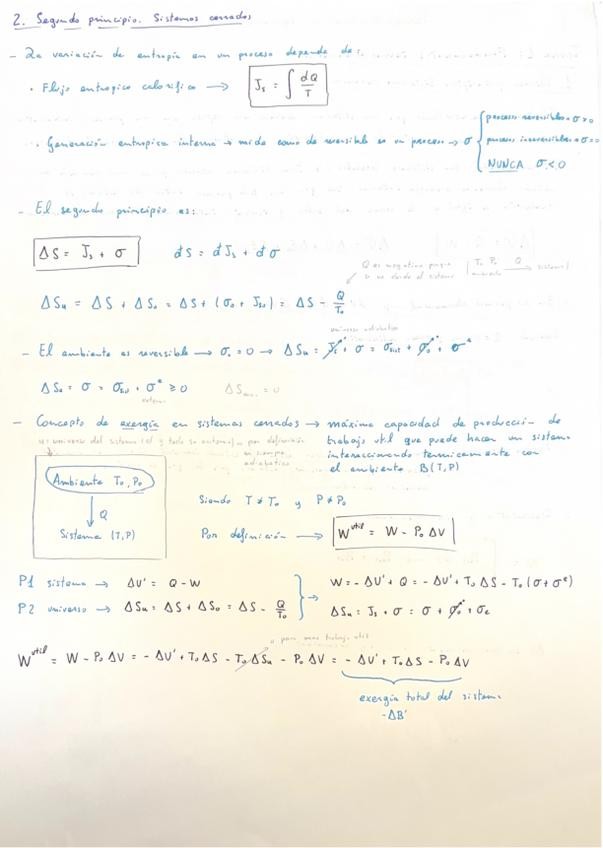 2. Segundo principio. Sistemas cerrados
- La variación de entropía en un proceso depende de:
· Flujo entropico calorifico → J_s = ∫ đQ/T
· Generación entropica interna → mide como de reversible es un proceso → σ
procesos reversibles
procesos irreversibles
NUNCA σ<0
- El segundo principio es:
ΔS = J_s + σ đS = đJ_s + đσ
Q es negativo porque
T_0 P_0 Q sistema
ambiente
ΔS_u = ΔS + ΔS_0 = ΔS + (σ_0 + J_{s0}) = ΔS - Q/T_0
universo adiabatico
- El ambiente es reversible → σ_0 = 0 → ΔS_u = J_s + σ = σ_{sist} + σ_0 + σ^e
ΔS_u = σ = σ_{sist} + σ^e ≥ 0
- Concepto de exergía en sistemas cerrados → máxima capacidad de producción de
trabajo util que puede hacer un sistema
interaccionando termicamente con
el ambiente B(T,P)
universo del sistema (el y todo su entorno) → por definición
es siempre
adiabatico
Ambiente T_0, P_0
Q
Sistema (T,P)
Siendo T ≠ T_0 y P ≠ P_0
Por definición → W^{util} = W - P_0 ΔV
P1 sistema → ΔU' = Q - W
P2 universo → ΔS_u = ΔS + ΔS_0 = ΔS - Q/T_0
W = -ΔU' + Q = -ΔU' + T_0 ΔS - T_0 (σ + σ^e)
ΔS_u = J_s + σ = σ + σ_0 + σ_e
0 para max trabajo util
W^{util} = W - P_0 ΔV = -ΔU' + T_0 ΔS - T_0 ΔS_u - P_0 ΔV = -ΔU' + T_0 ΔS - P_0 ΔV
exergía total del sistema
-ΔB'